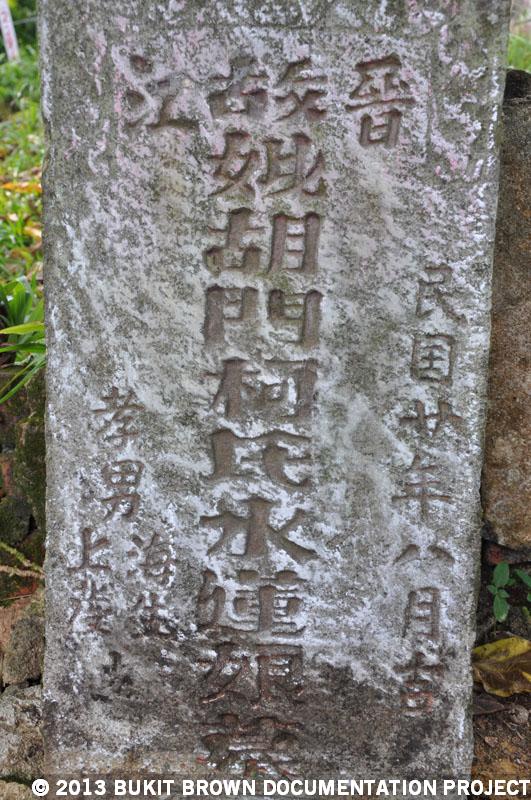 晋江
民国廿年八月吉
故妣胡門柯氏水蓮娘墓
孝男
海生
上
立
© 2013 BUKIT BROWN DOCUMENTATION PROJECT